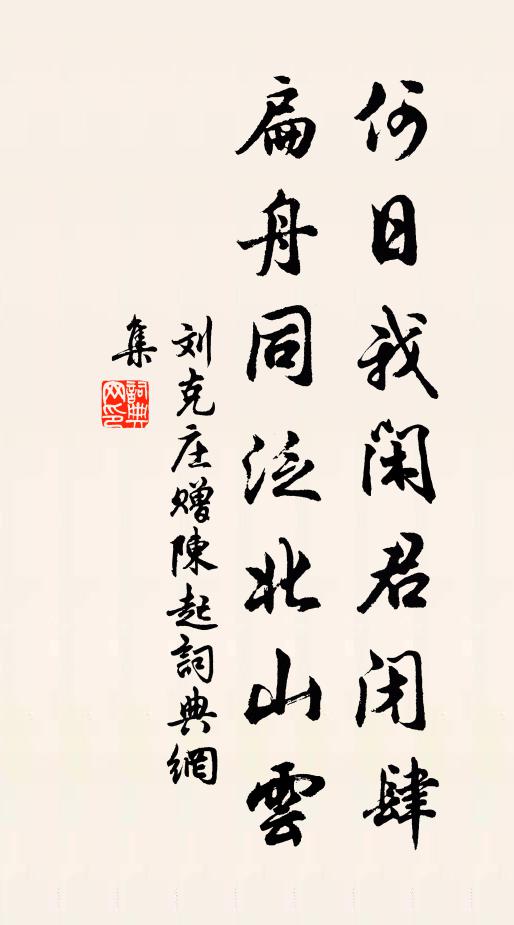 何日我閑君闭肆
扁舟同泛北山雲
刘克庄赠陳起詞典網
集
詞典網印